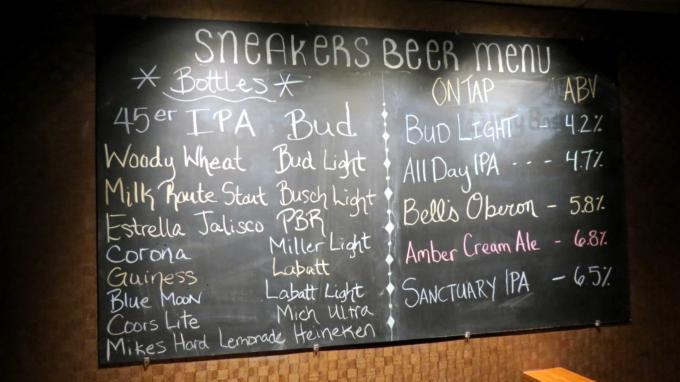 SNEAKERS BEER MENU
* Bottles *
45er IPA
Woody Wheat
Milk Route Stout
Estrella Jalisco
Corona
Guiness
Blue Moon
Coors Lite
Mikes Hard Lemonade
Bud
Bud Light
Busch Light
PBR
Miller Light
Labatt
Labatt Light
Mich Ultra
Heineken
ON TAP ABV
BUD LIGHT - 4.2%
All Day IPA --- 4.7%
Bell's Oberon - 5.8%
Amber Cream Ale - 6.8%
SANCTUARY IPA - 6.5%